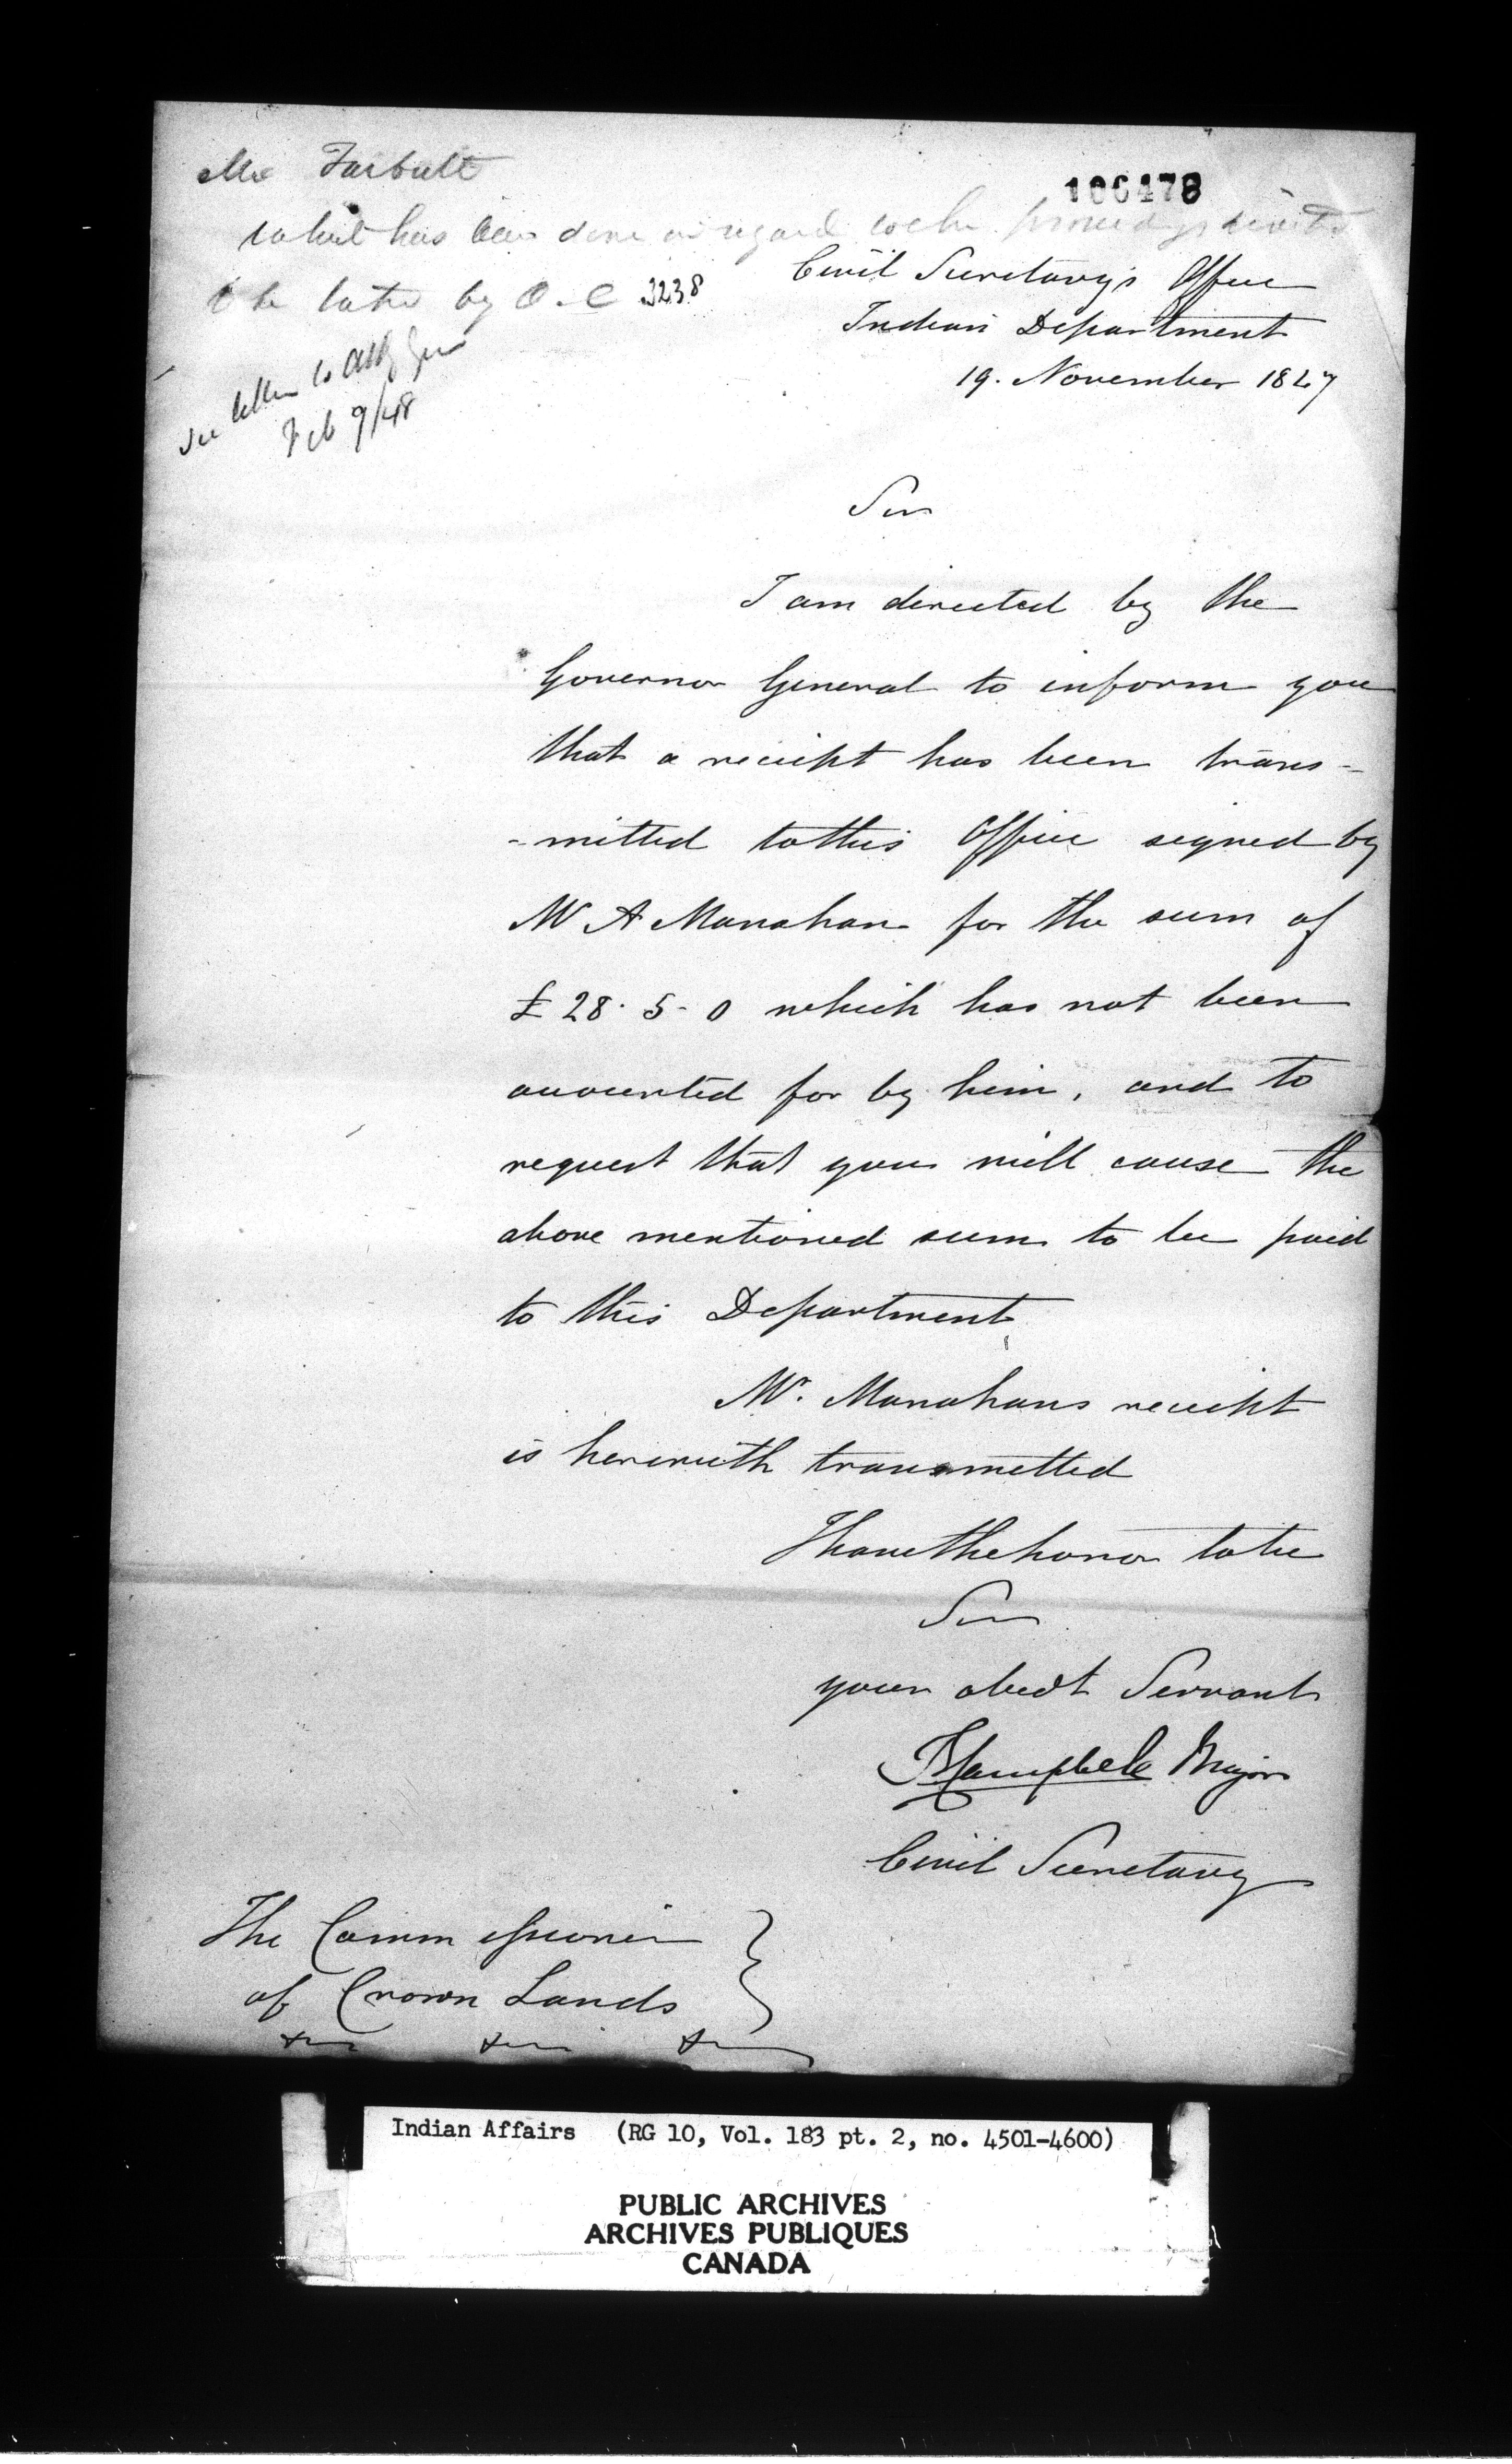 Mr Tarbutt
106478
what has been done in regard to the
to be taken by O-C 3238
See letter to Atty Gen
Feb 9/48
Civil Secretary's Office
Indian Department
19. November 1847
Sir
I am directed by the
Governor General to inform you
that a receipt has been trans-
-mitted to this Office signed by
Mr A Manahan for the sum of
£ 28. 5- 0 which has not been
accounted for by him, and to
request that you will cause the
above mentioned sum to be paid
to this Department
Mr. Manahans receipt
is herewith transmitted
I have the honor to be
Sir
your obedt Servant
Campbell Major
Civil Secretary
The Commissioner
of Crown Lands
Indian Affairs (RG 10, Vol. 183 pt. 2, no. 4501-4600)
PUBLIC ARCHIVES
ARCHIVES PUBLIQUES
CANADA